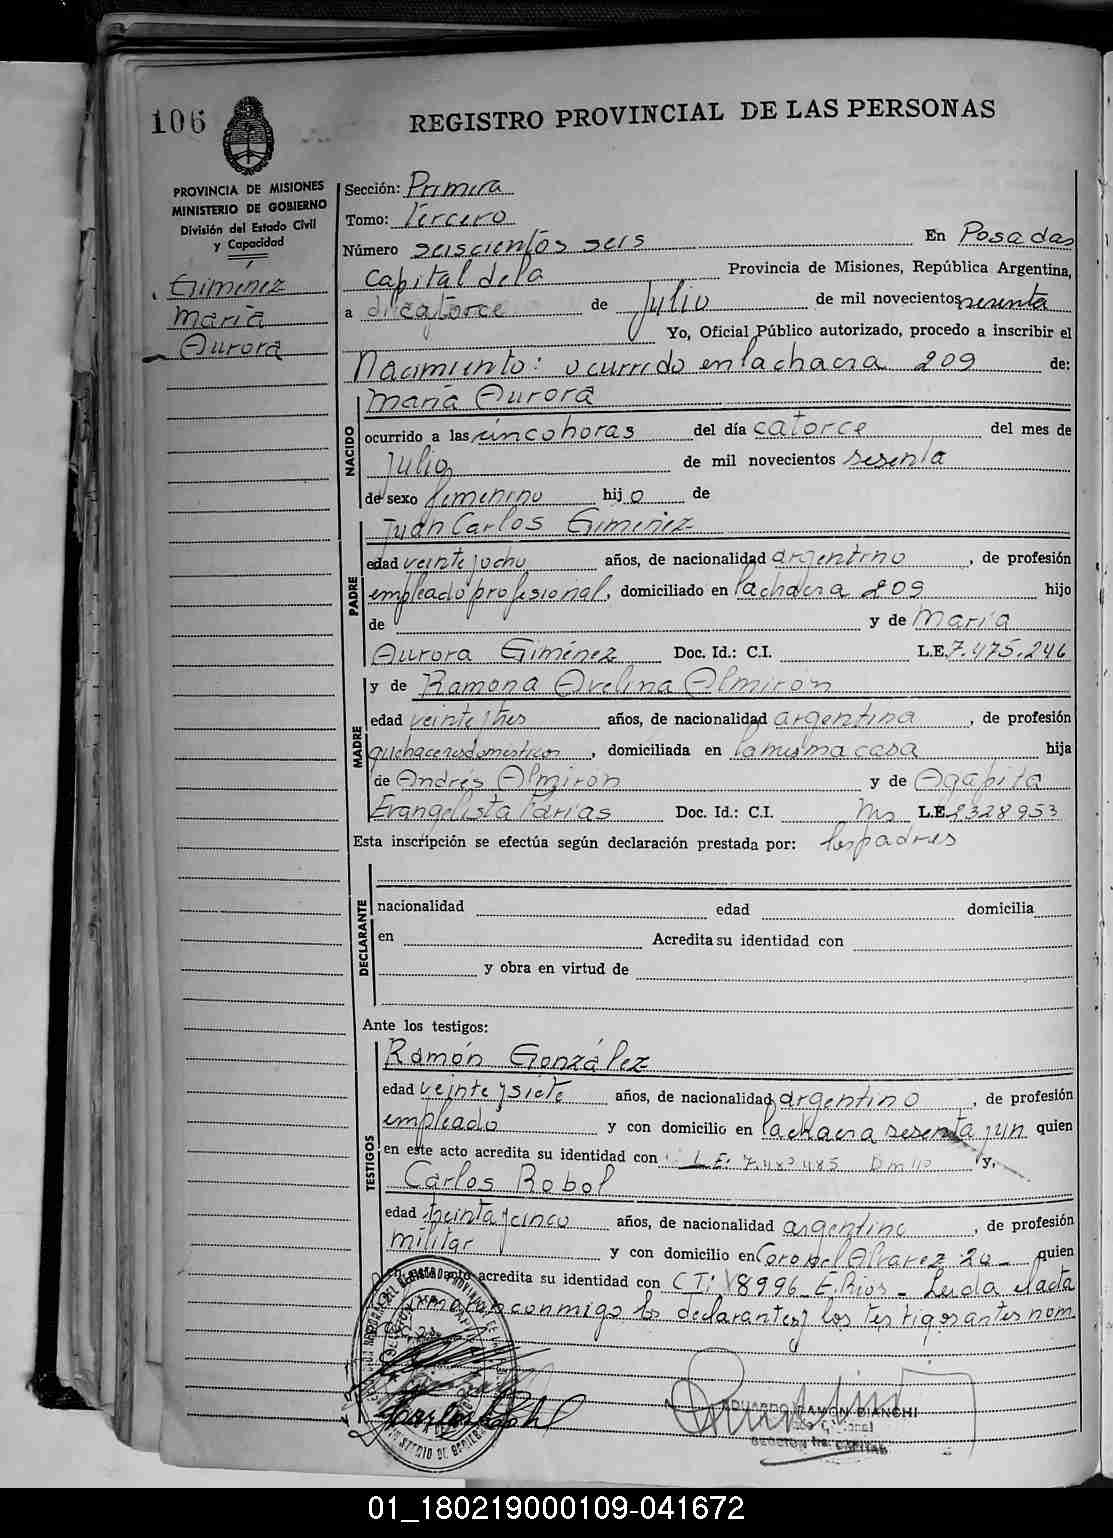 106
REGISTRO PROVINCIAL DE LAS PERSONAS
PROVINCIA DE MISIONES
MINISTERIO DE GOBIERNO
División del Estado Civil
y Capacidad
Gimenez
María
Aurora
Sección: Primera
Tomo: Tercero
Número seiscientos seis En Posadas
Capital de la Provincia de Misiones, República Argentina,
a catorce de Julio de mil novecientos sesenta
Yo, Oficial Público autorizado, procedo a inscribir el
Nacimiento: ocurrido en la chacra 209 de:
NACIDO
María Aurora
ocurrido a las cinco horas del día catorce del mes de
Julio de mil novecientos sesenta
de sexo femenino hijo de
PADRE
Juan Carlos Gimenez
edad veinte y ocho años, de nacionalidad argentino, de profesión
empleado profesional, domiciliado en la chacra 209 hijo
de y de María
Aurora Giménez Doc. Id.: C.I. L.E. 7.475.246
MADRE
y de Ramona Avelina Almirón
edad veinte y tres años, de nacionalidad argentina, de profesión
quehaceres domésticos, domiciliada en la misma casa hija
de Andrés Almirón y de Agapita
Evangelista Farias Doc. Id.: C.I. Ms L.E. 2328953
Esta inscripción se efectúa según declaración prestada por: los padres
DECLARANTE
nacionalidad edad domicilia
en Acredita su identidad con
y obra en virtud de
Ante los testigos:
TESTIGOS
Ramón González
edad veinte y siete años, de nacionalidad argentino, de profesión
empleado y con domicilio en la chacra sesenta y un quien
en este acto acredita su identidad con L.E. y,
Carlos Robol
edad treinta y cinco años, de nacionalidad argentino, de profesión
militar y con domicilio en Coronel Alvarez 20 quien
acredita su identidad con C.I: 8996 E. Rios - Leida el acta
firmaron conmigo los declarantes y los testigos antes nom
EDUARDO RAMON BIANCHI
SECCION 1ra. CAPITAL
01_180219000109-041672